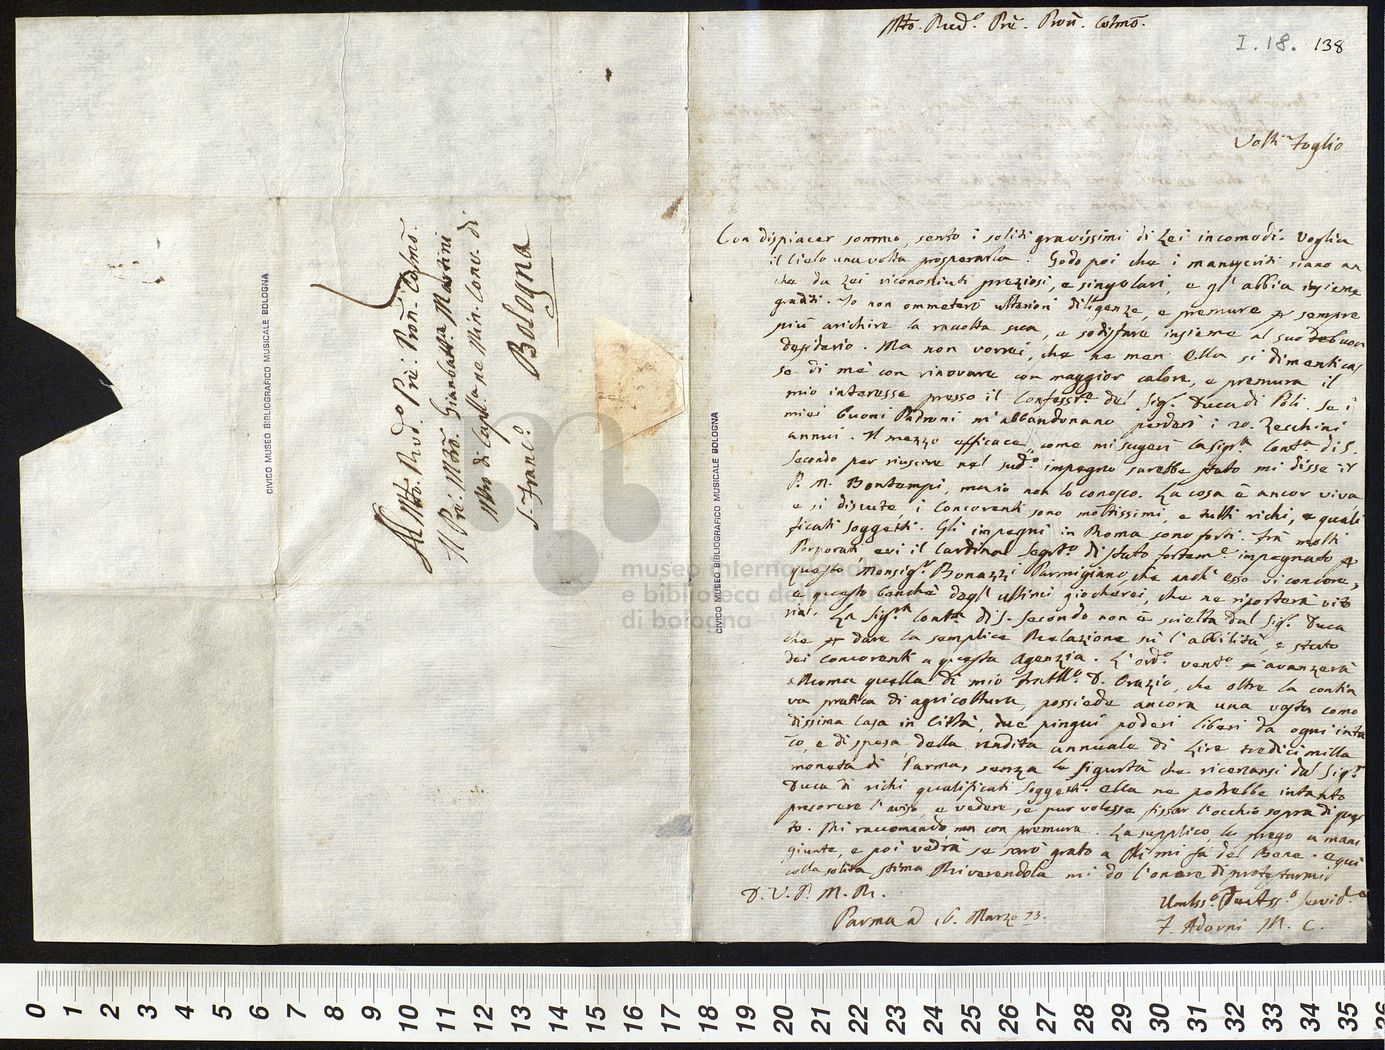 Mto. Rud.o Prē. Proñ. Colmõ.
I. 18. 138
Volti foglio
Con dispiacer sommo, sento i soliti gravissimi di Lei incomodi. Voglia
il Cielo una volta prosperarla. Godo poi che i manuscriti siano an
che da Lei riconosciuti preziosi, e singolari, e gl'abbia insieme
graditi. Io non ommeterò ulteriori diligenze, e premure pr sempre
più arichire la racolta sua, e sodisfare insieme al suo buon
desiderio. Ma non vorrei, che ne men Ella si dimenticas
se di me con rinovare con maggior calore, e premura il
mio interesse presso il Confessre del Sigr. Duca di Poli. Se i
miei buoni Padroni m'abbandonano perderò i 20. Zecchini
annui. Il mezzo efficace, come mi sugerì la Sigra Conta di S.
Secondo per riuscire nel sudo. impegno sarebbe stato mi disse il
P. M. Bontempi, ma io non lo conosco. La cosa è ancor viva
e si discute, i Concorenti sono moltissimi, e tutti richi, e quali
ficati soggetti. Gli impegni in Roma sono forti. Fra molti
Porporati evi il Cardinal Segrto di Stato forteme. impegnato pr
questo Monsigr. Bonazzi Parmigiano, che anch'esso vi concore,
e questo banchè degl'ultimi giocherei, che ne riporterà vito
ria. La Sigra Conta di S. Secondo non è scielta dal Sigr. Duca
che pr dare la semplice Relazione sù l'abbilità, e stato
dei concorenti a questa Agenzia. L'ordo. vento. avanzerà
a Roma quella di mio fratllo. D. Orazio, che oltre la contin
va pratica di agricoltura, possiede ancora una vasta como
dissima casa in Città, due pingui poderi liberi da ogni inta
co, e di spesa della rendita annuale di Lire tredicimilla
moneta di Parma, senza le sigurtà che ricercansi dal Sigr.
Duca di richi qualificati soggetti. Ella ne potrebbe intanto
precorere l'aviso, e vedere se pur volesse fissar l'occhio sopra di ques
to. Mi raccomando ma con premura. La supplico, la prego a mani
giunte, e poi vedrà se sarò grato a chi mi fà del Bene. e qui
colla solita stima Riverendola mi do l'onore di protestarmi
D. V. P. M. R.
Parma a' 16. Marzo 73.
Umliss.o Devotiss.o Servid.e
F. Adorni M. C.
Al Mto. Rudo. Prē: Proñ: Colmõ.
Il Prē: Mrō: Gianbatta Martini
Mro di Capella ne Min. Conv. di
S. Franco.
Bologna
CIVICO MUSEO BIBLIOGRAFICO MUSICALE BOLOGNA
CIVICO MUSEO BIBLIOGRAFICO MUSICALE BOLOGNA
museo internazionale
e biblioteca della musica
di bologna
0 1 2 3 4 5 6 7 8 9 10 11 12 13 14 15 16 17 18 19 20 21 22 23 24 25 26 27 28 29 30 31 32 33 34 35 36